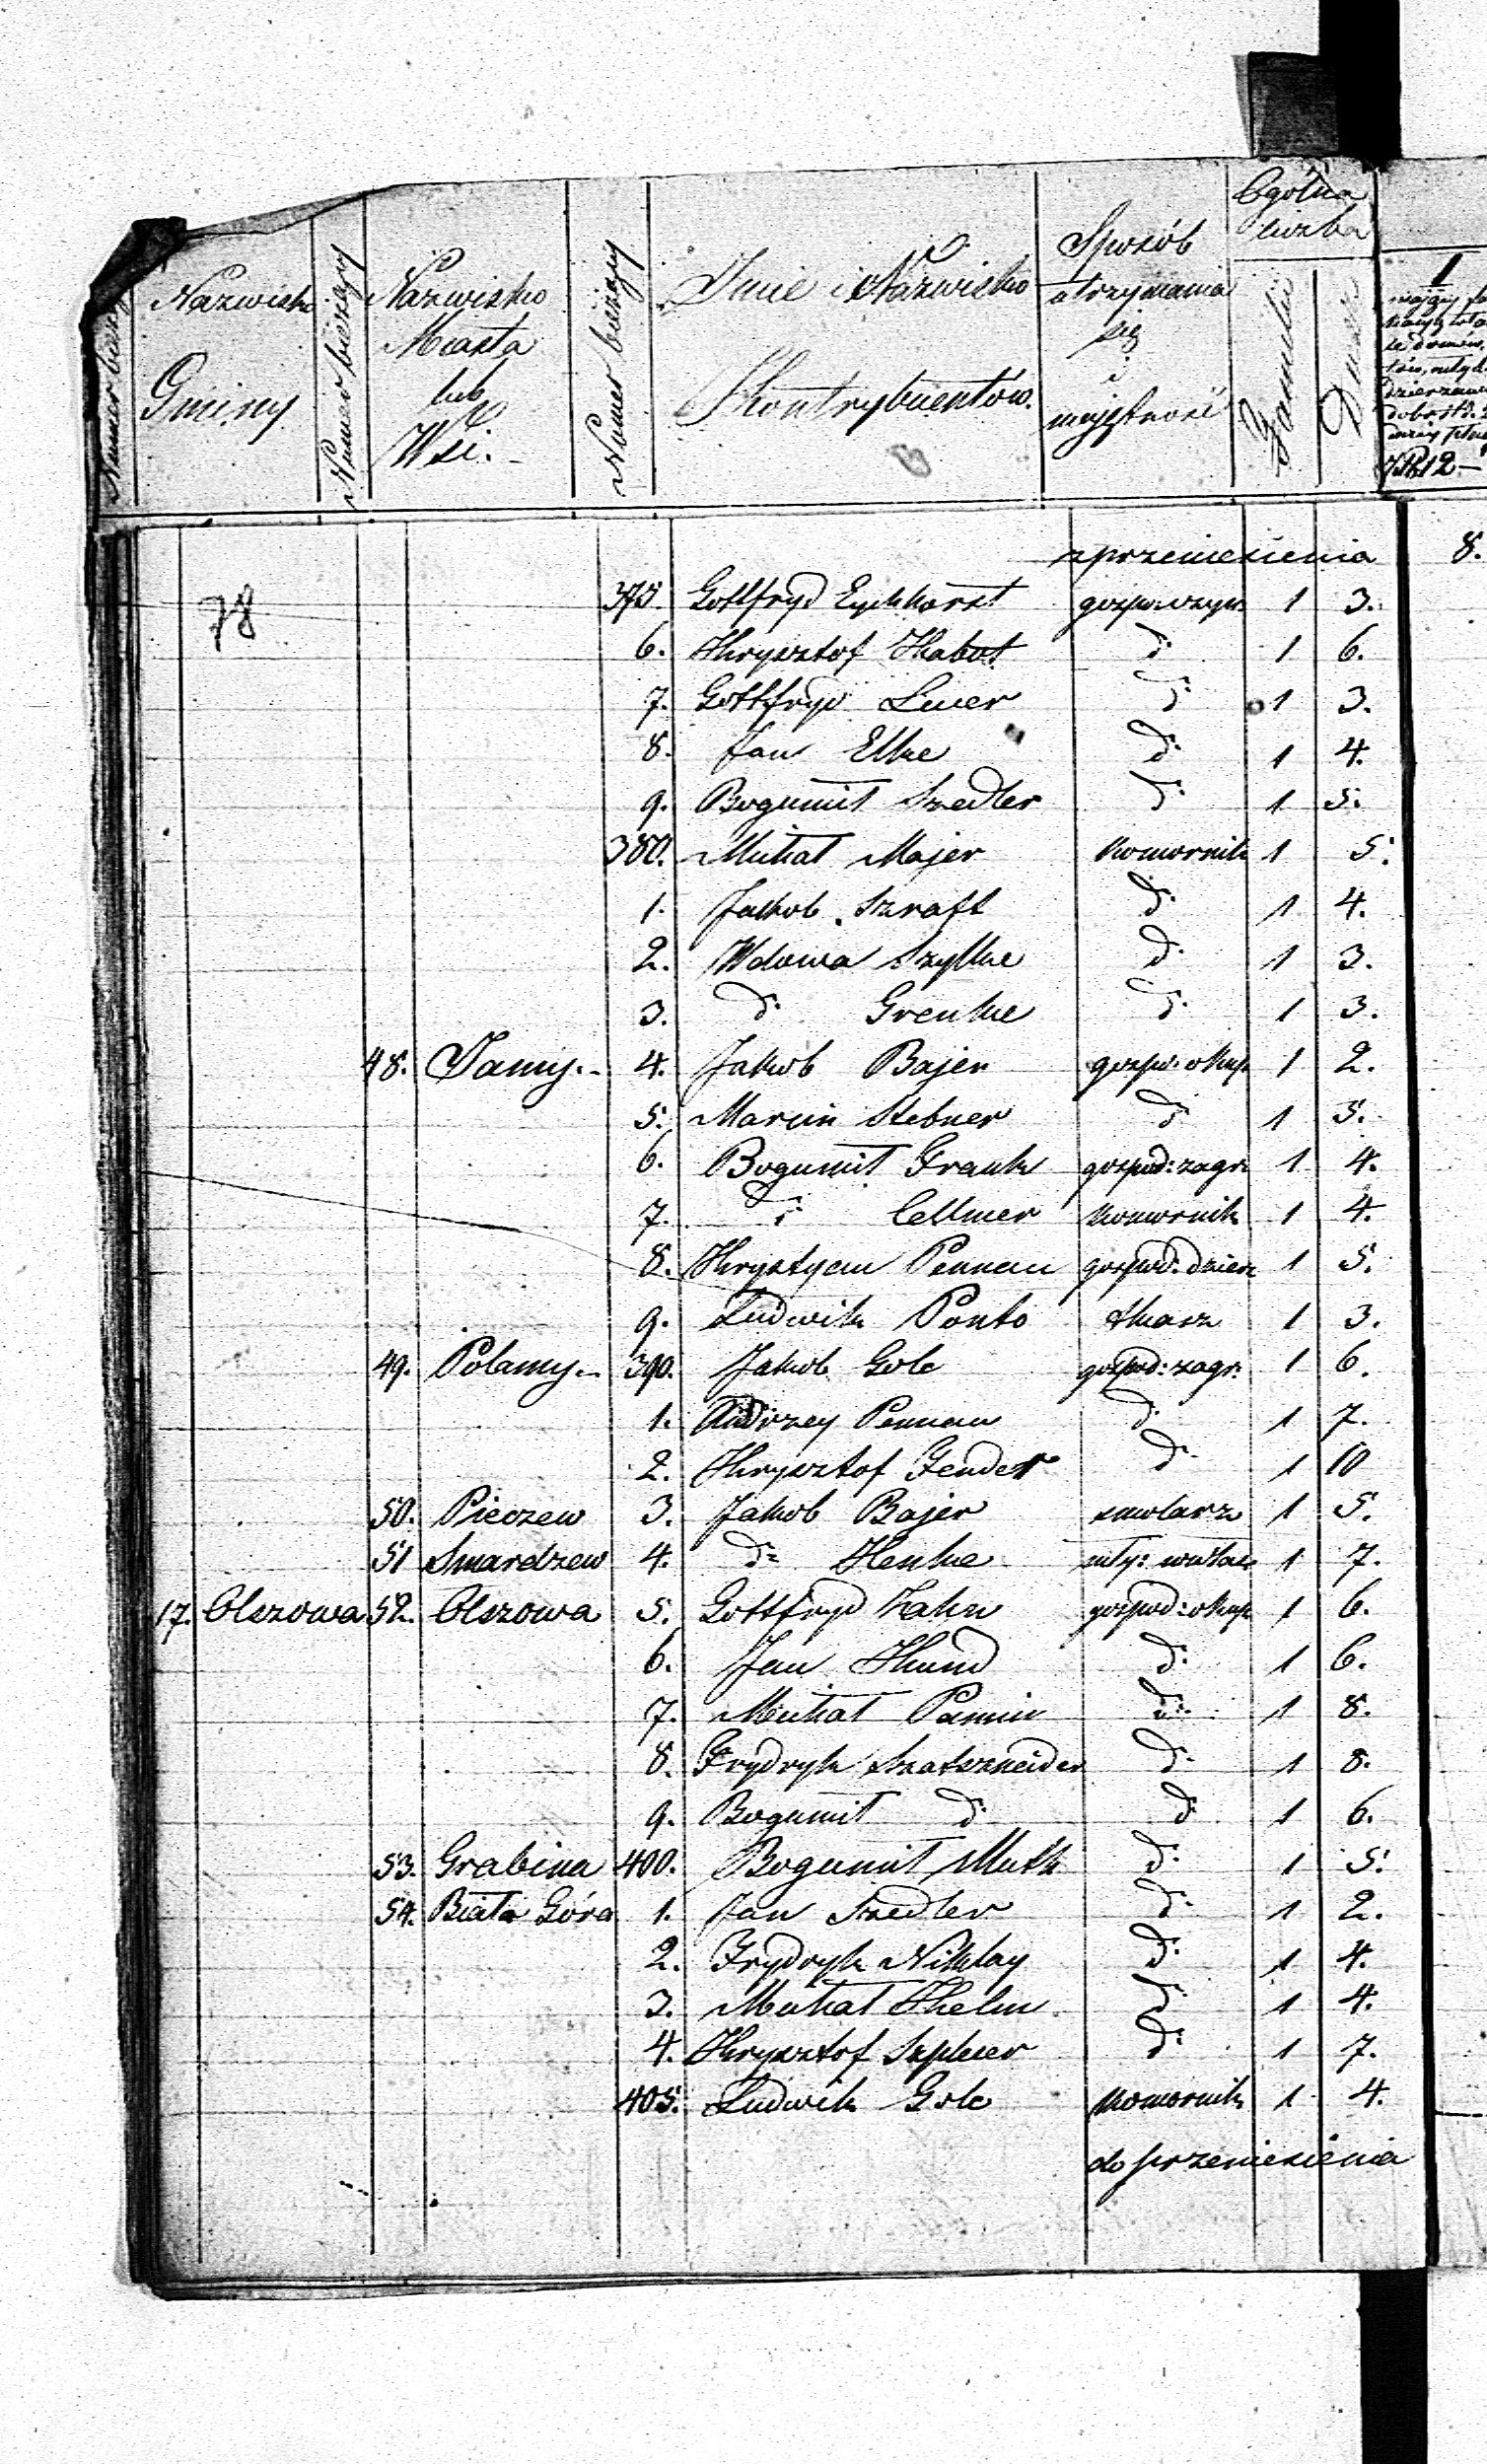 Numer bieżący Nazwisko Gminy Numer bieżący Nazwisko Miasta lub Wsi. Nomer bieżący Imie i Nazwisko Kontrybuentów. Sposób utrzymania się i majętność Ogólna liczba Familii Dusz 1
12.—
zprzeniesienia 8.
78
375. Gottfryd Eychhorst 1 3.
6. Krysztof Kabot d. 1 6.
7. Gottfryd d. 1 3.
8. Jan Elke d. 1 4.
9. Bogumił Szedler d. 1 5.
380. Michał Majer komornik 1 5.
1. Jakob Szraft d. 1 4.
2. Wdowa Szylke d. 1 3.
3. d. Grenke d. 1 3.
48. Jamy.- 4. Jakob Bajer gospo: okup. 1 2.
5. Marcin Stebner d 1 5.
6. Bogumił Frank gospod: zagr. 1 4.
7. d. Cellmer komornik 1 4.
8. Krystyan Pennau gospod. dzier: 1 5.
9. Ludwik Ponto tkacz 1 3.
49. Polamy.- 390. Jakob Golc gospod: zagr: 1 6.
1. Andrzey Pennau d. 1 7.
2. Krysztof Fender d. 1 10
50. Pieczew 3. Jakob Bajer smolarz 1 5.
51 Smardzew 4. d. Henke 1 7.
17. Olszowa 52. Olszowa 5. Gottfryd Zahn gospod: okup 1 6.
6. Jan Kund d. 1 6.
7. Michał d. 1 8.
8. Frydryk Szatszneider d. 1 8.
9. Bogumił d. d. 1 6.
53. Grabina 400. Bogumił Muth d. 1 5.
54. Biała Góra 1. Jan Szedler d. 1 2.
2. Frydryk Niklay d. 1 4.
3. Michał Khelm d. 1 4.
4. Krysztof d. 1 7.
405. Ludwik Golc komornik 1 4.
do przeniesienia